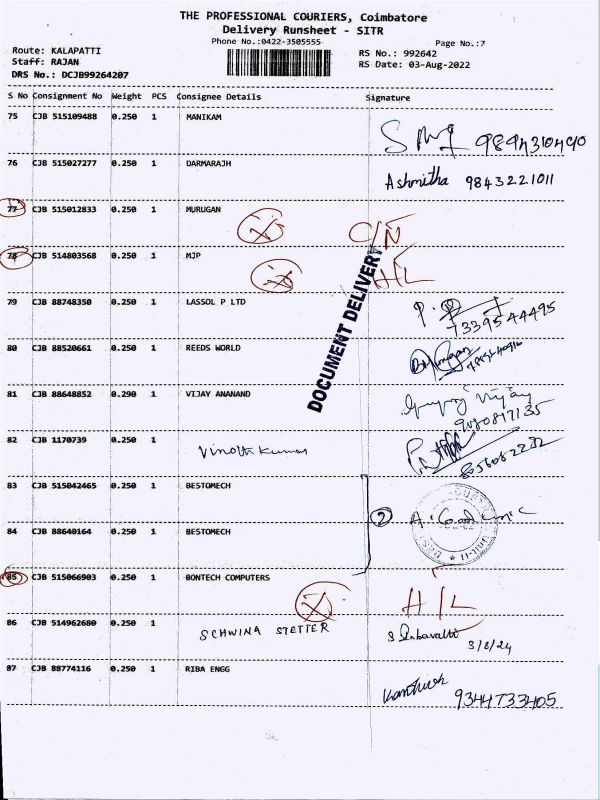 THE PROFESSIONAL COURIERS, Coimbatore
Delivery Runsheet - SITR
Phone No.:0422-3505555
Page No.:7
Route: KALAPATTI
RS No.: 992642
Staff: RAJAN
RS Date: 03-Aug-2022
DRS No.: DCJB99264207
S No Consignment No Weight PCS Consignee Details Signature
75 CJB 515109488 0.250 1 MANIKAM
9894310490
76 CJB 515027277 0.250 1 DARMARAJH Ashmitha 9843221011
77 CJB 515012833 0.250 1 MURUGAN
C/N
78 CJB 514803568 0.250 1 MJP
H/L
DOCUMENT DELIVERY
79 CJB 88748350 0.250 1 LASSOL P LTD
7339544495
80 CJB 88520661 0.250 1 REEDS WORLD
81 CJB 88648852 0.290 1 VIJAY ANANAND
82 CJB 1170739 0.250 1 Vinoth Kumar
8056082232
83 CJB 515042465 0.250 1 BESTOMECH
2
84 CJB 88640164 0.250 1 BESTOMECH
85 CJB 515066903 0.250 1 BONTECH COMPUTERS
H/L
86 CJB 514962680 0.250 1 SCHWINA STETTER
3/8/24
87 CJB 88774116 0.250 1 RIBA ENGG
9344733405